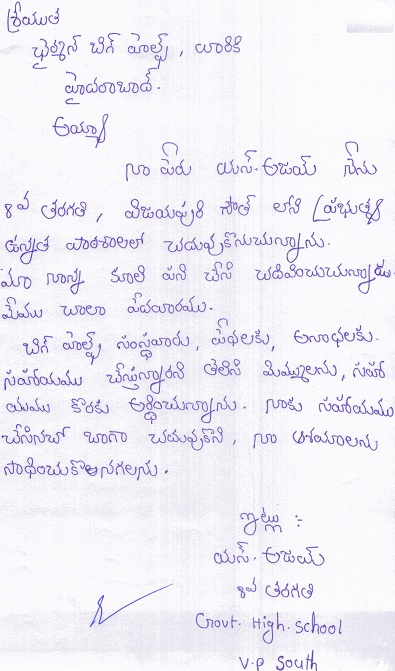 శ్రీయుత
ఛైర్మన్ బిగ్ హెల్ప్, వారికి
హైదరాబాద్.
అయ్యా
నా పేరు యస్. అజయ్ నేను
8వ తరగతి, విజయపురి సౌత్ లోని ప్రభుత్వ
ఉన్నత పాఠశాలలో చదువుకొనుచున్నాను.
మా నాన్న కూలి పని చేసి చదివించుచున్నాడు.
మేము చాలా పేదవారము.
బిగ్ హెల్ప్ సంస్థవారు, పేధలకు, అనాధలకు.
సహాయము చేస్తున్నారని తెలిసి మిమ్ములను, సహా
యము కొరకు అర్థించుచున్నాను. నాకు సహాయము
చేసినచో బాగా చదువుకొని, నా ఆశయాలను
సాధించుకొనగలను.
ఇట్లు :-
యస్. అజయ్
8వ తరగతి
Govt. High. School
V.P South